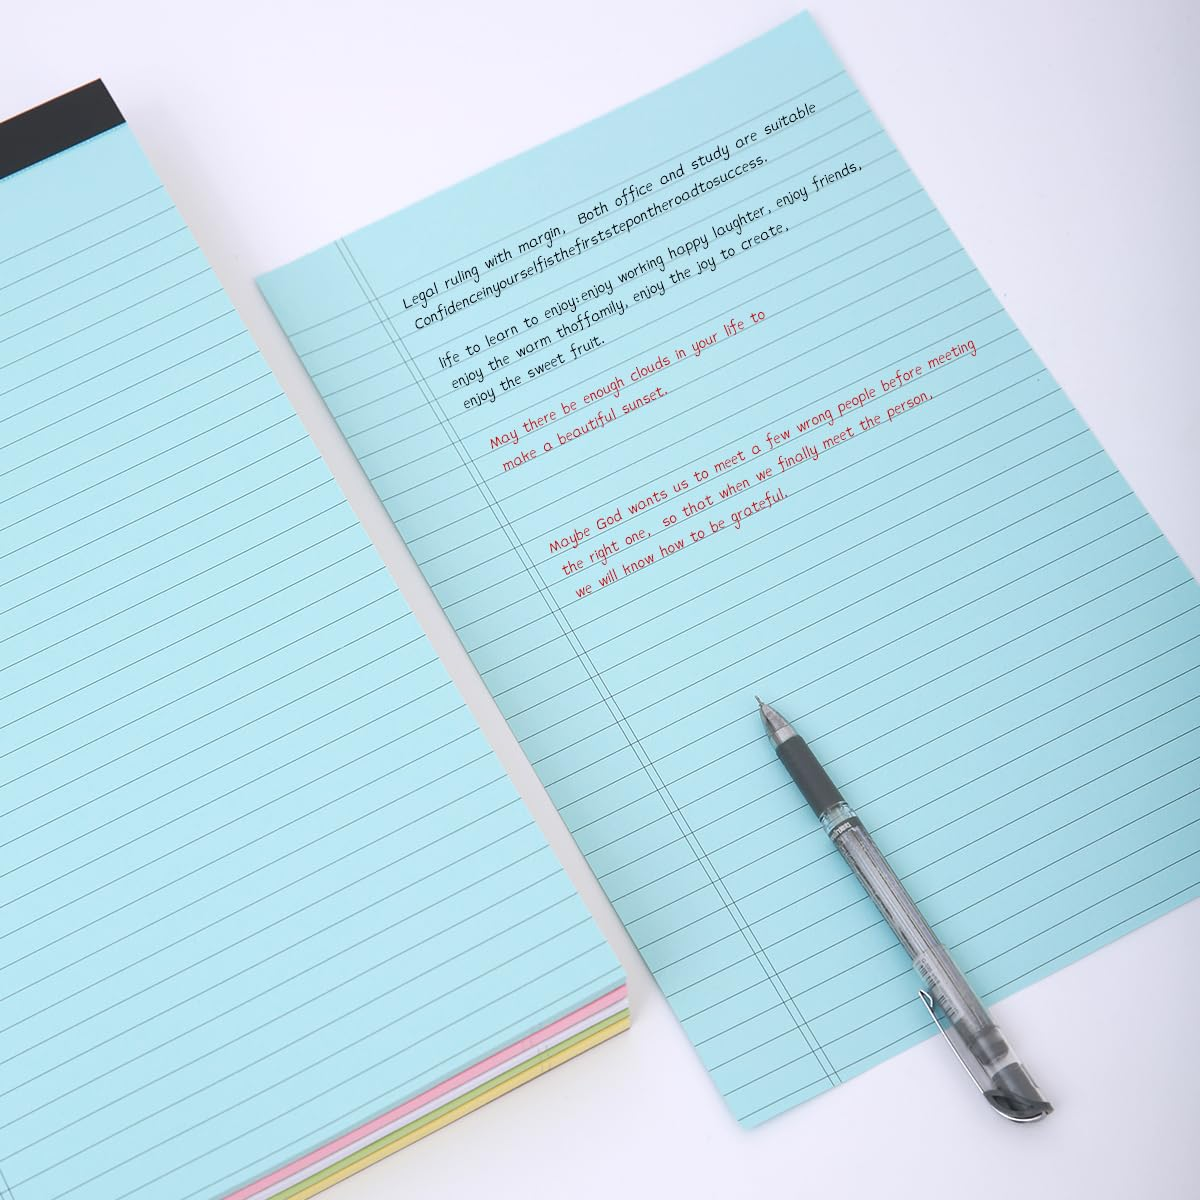 Legal ruling with margin, Both office and study are suitable
Confidenceinyourselfisthefirststepontheroadtosuccess.
life to learn to enjoy:enjoy working happy laughter, enjoy friends,
enjoy the warm thoffamily, enjoy the joy to create,
enjoy the sweet fruit.
May there be enough clouds in your life to
make a beautiful sunset.
Maybe God wants us to meet a few wrong people before meeting
the right one, so that when we finally meet the person,
we will know how to be grateful.